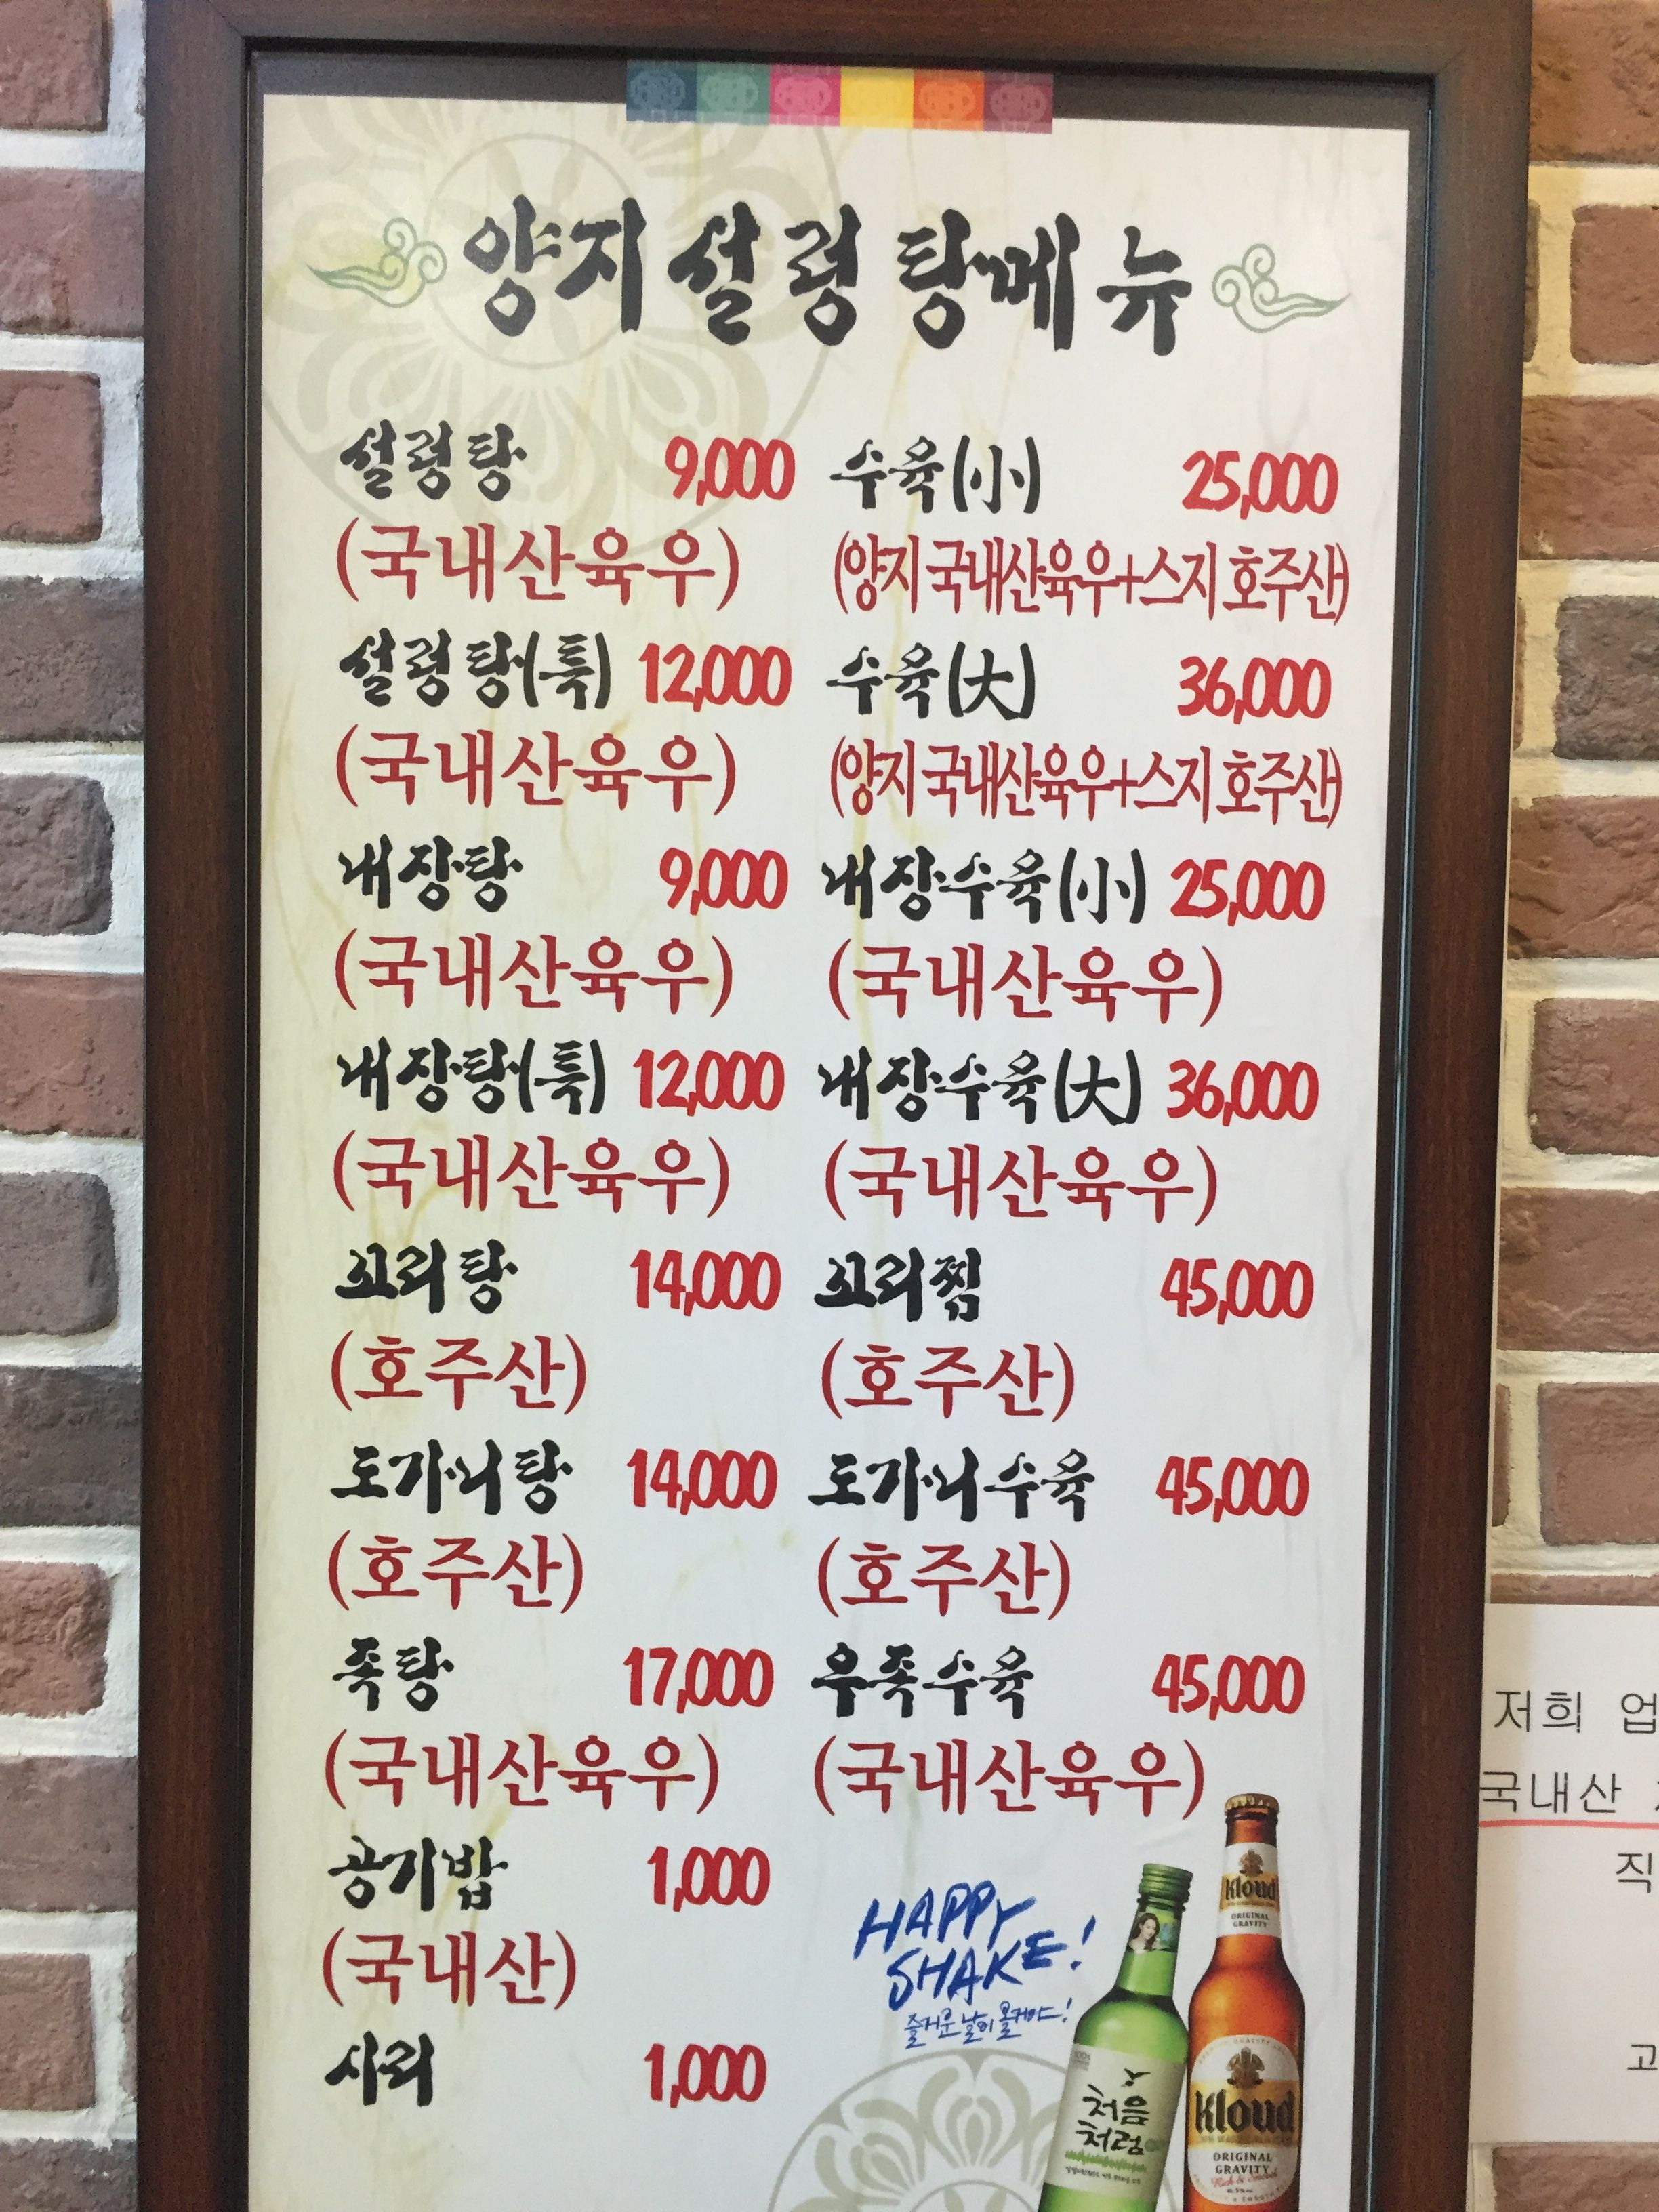 양지설렁탕메뉴
설렁탕 9,000
(국내산육우)
설렁탕(특) 12,000
(국내산육우)
내장탕 9,000
(국내산육우)
내장탕(특) 12,000
(국내산육우)
꼬리탕 14,000
(호주산)
도가니탕 14,000
(호주산)
족탕 17,000
(국내산육우)
공기밥 1,000
(국내산)
사리 1,000
수육(小) 25,000
(양지국내산육우+스지호주산)
수육(大) 36,000
(양지국내산육우+스지호주산)
내장수육(小) 25,000
(국내산육우)
내장수육(大) 36,000
(국내산육우)
꼬리찜 45,000
(호주산)
도가니수육 45,000
(호주산)
우족수육 45,000
(국내산육우)
HAPPY
SHAKE!
즐거운 날이 올거야!
처음
처럼
Kloud
ORIGINAL
GRAVITY
Kloud
ORIGINAL
GRAVITY
저희 업
국내산
직
고